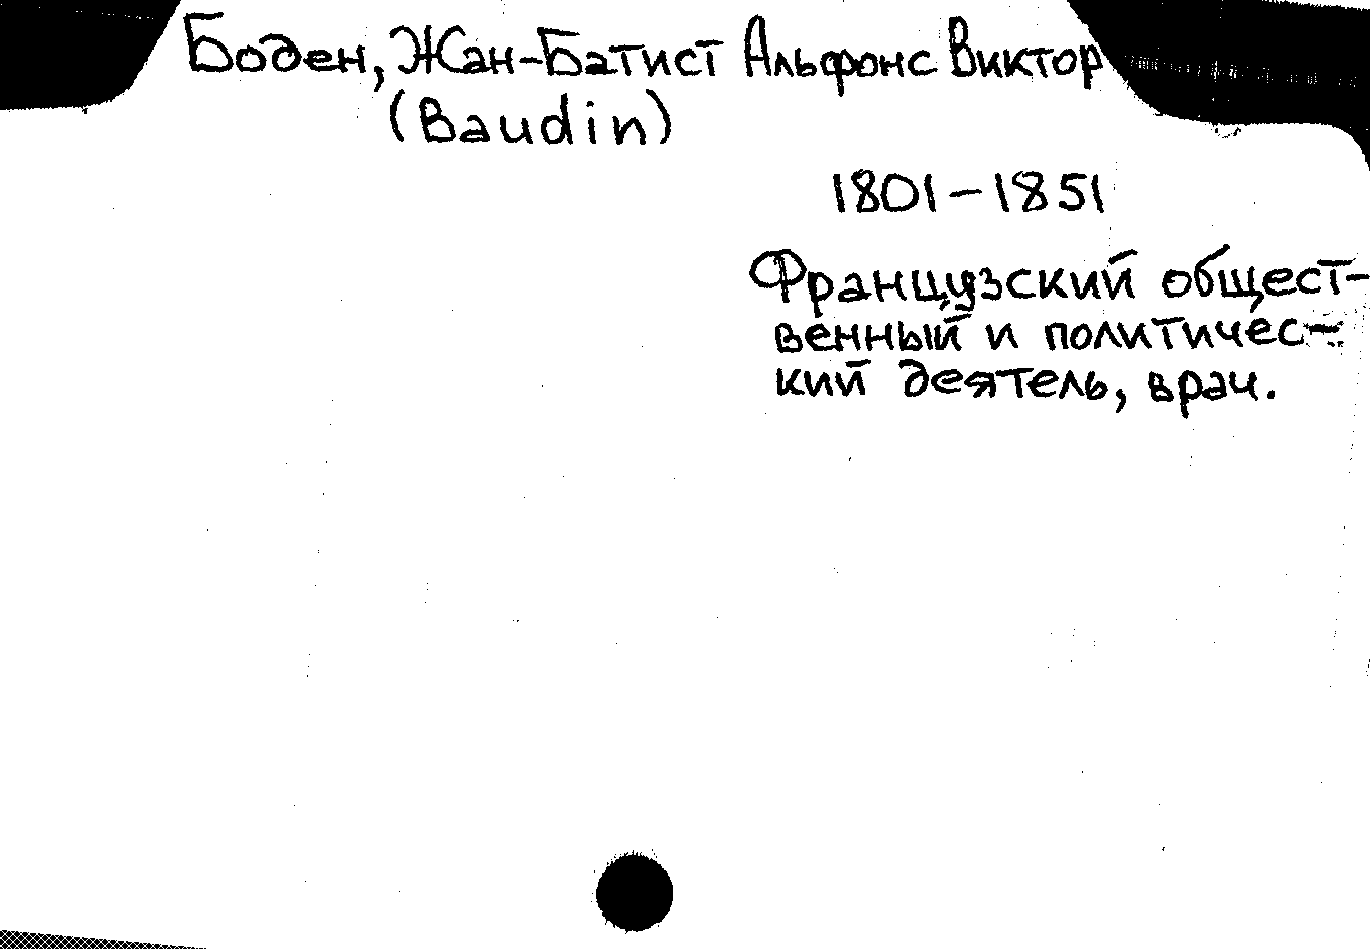 Боден, Жан-Батист Альфонс Виктор
(Baudin)
1801-1851
Французский общест-
венный и политичес-
кий деятель, врач.